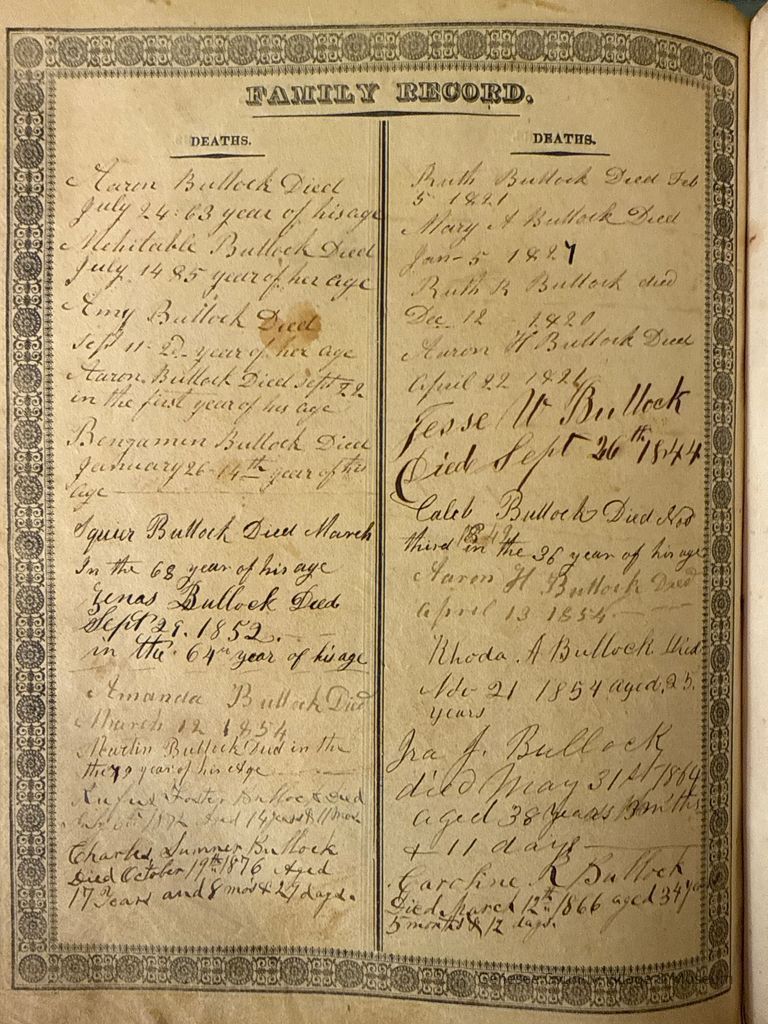 FAMILY RECORD.
DEATHS.
Aaron Bullock Died
July 24: 63 year of his age
Mehitable Bullock Died
July 14 85 year of her age
Amy Bullock Died
Sept 11 - year of her age
Aaron Bullock Died Sept 22
in the first year of his age
Bengamin Bullock Died
January 26 - 14th year of his
age
Squir Bullock Died March
In the 68 year of his age
Zenas Bullock Died
Sept 29. 1852.
in the 64th year of his age
Amanda Bullock Died
March 12 1854
Martin Bullock Died in the
the 79 year of his Age
Rufus Foster Bullock Died
1872 Aged 14 years & 11 mos
Charles Sumner Bullock
Died October 19th 1876 Aged
17 Years and 8 mos & 27 days.
DEATHS.
Ruth Bullock Died Feb
5 1821
Mary A Bullock Died
Jan - 5 1827
Ruth R Bullock died
Dec 12 1820
Aaron H Bullock Died
April 22 1826
Jesse W Bullock
Died Sept 26th 1844
Caleb Bullock Died Nov
third in the 36 year of his age
Aaron H Bullock Died
April 13 1854
Rhoda A Bullock Died
Nov 21 1854 aged 25
years
Ira J. Bullock
died May 31st 1864
aged 38 years months
& 11 days
Caroline R Bullock
Died March 12th 1866 aged 34 years
5 months & 12 days.